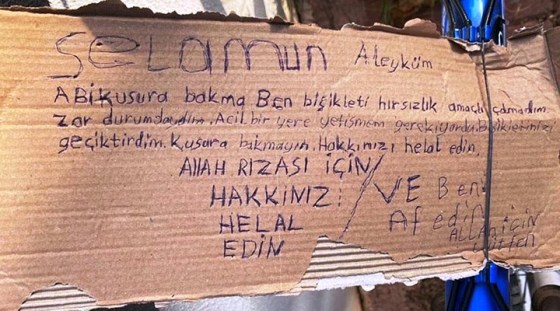 Selamun Aleyküm
Abi kusura bakma Ben bisikleti hırsızlık amaçlı çalmadım
zor durumdaydım. Acil bir yere yetişmem gerekiyordu bisikletinizi
geçiktirdim. Kusura bakmayın. Hakkınızı helal edin.
ALLAH RIZASI İÇİN
HAKKINIZI VE Beni
HELAL Af edin
EDİN ALLAH İÇİN
LÜTFEN